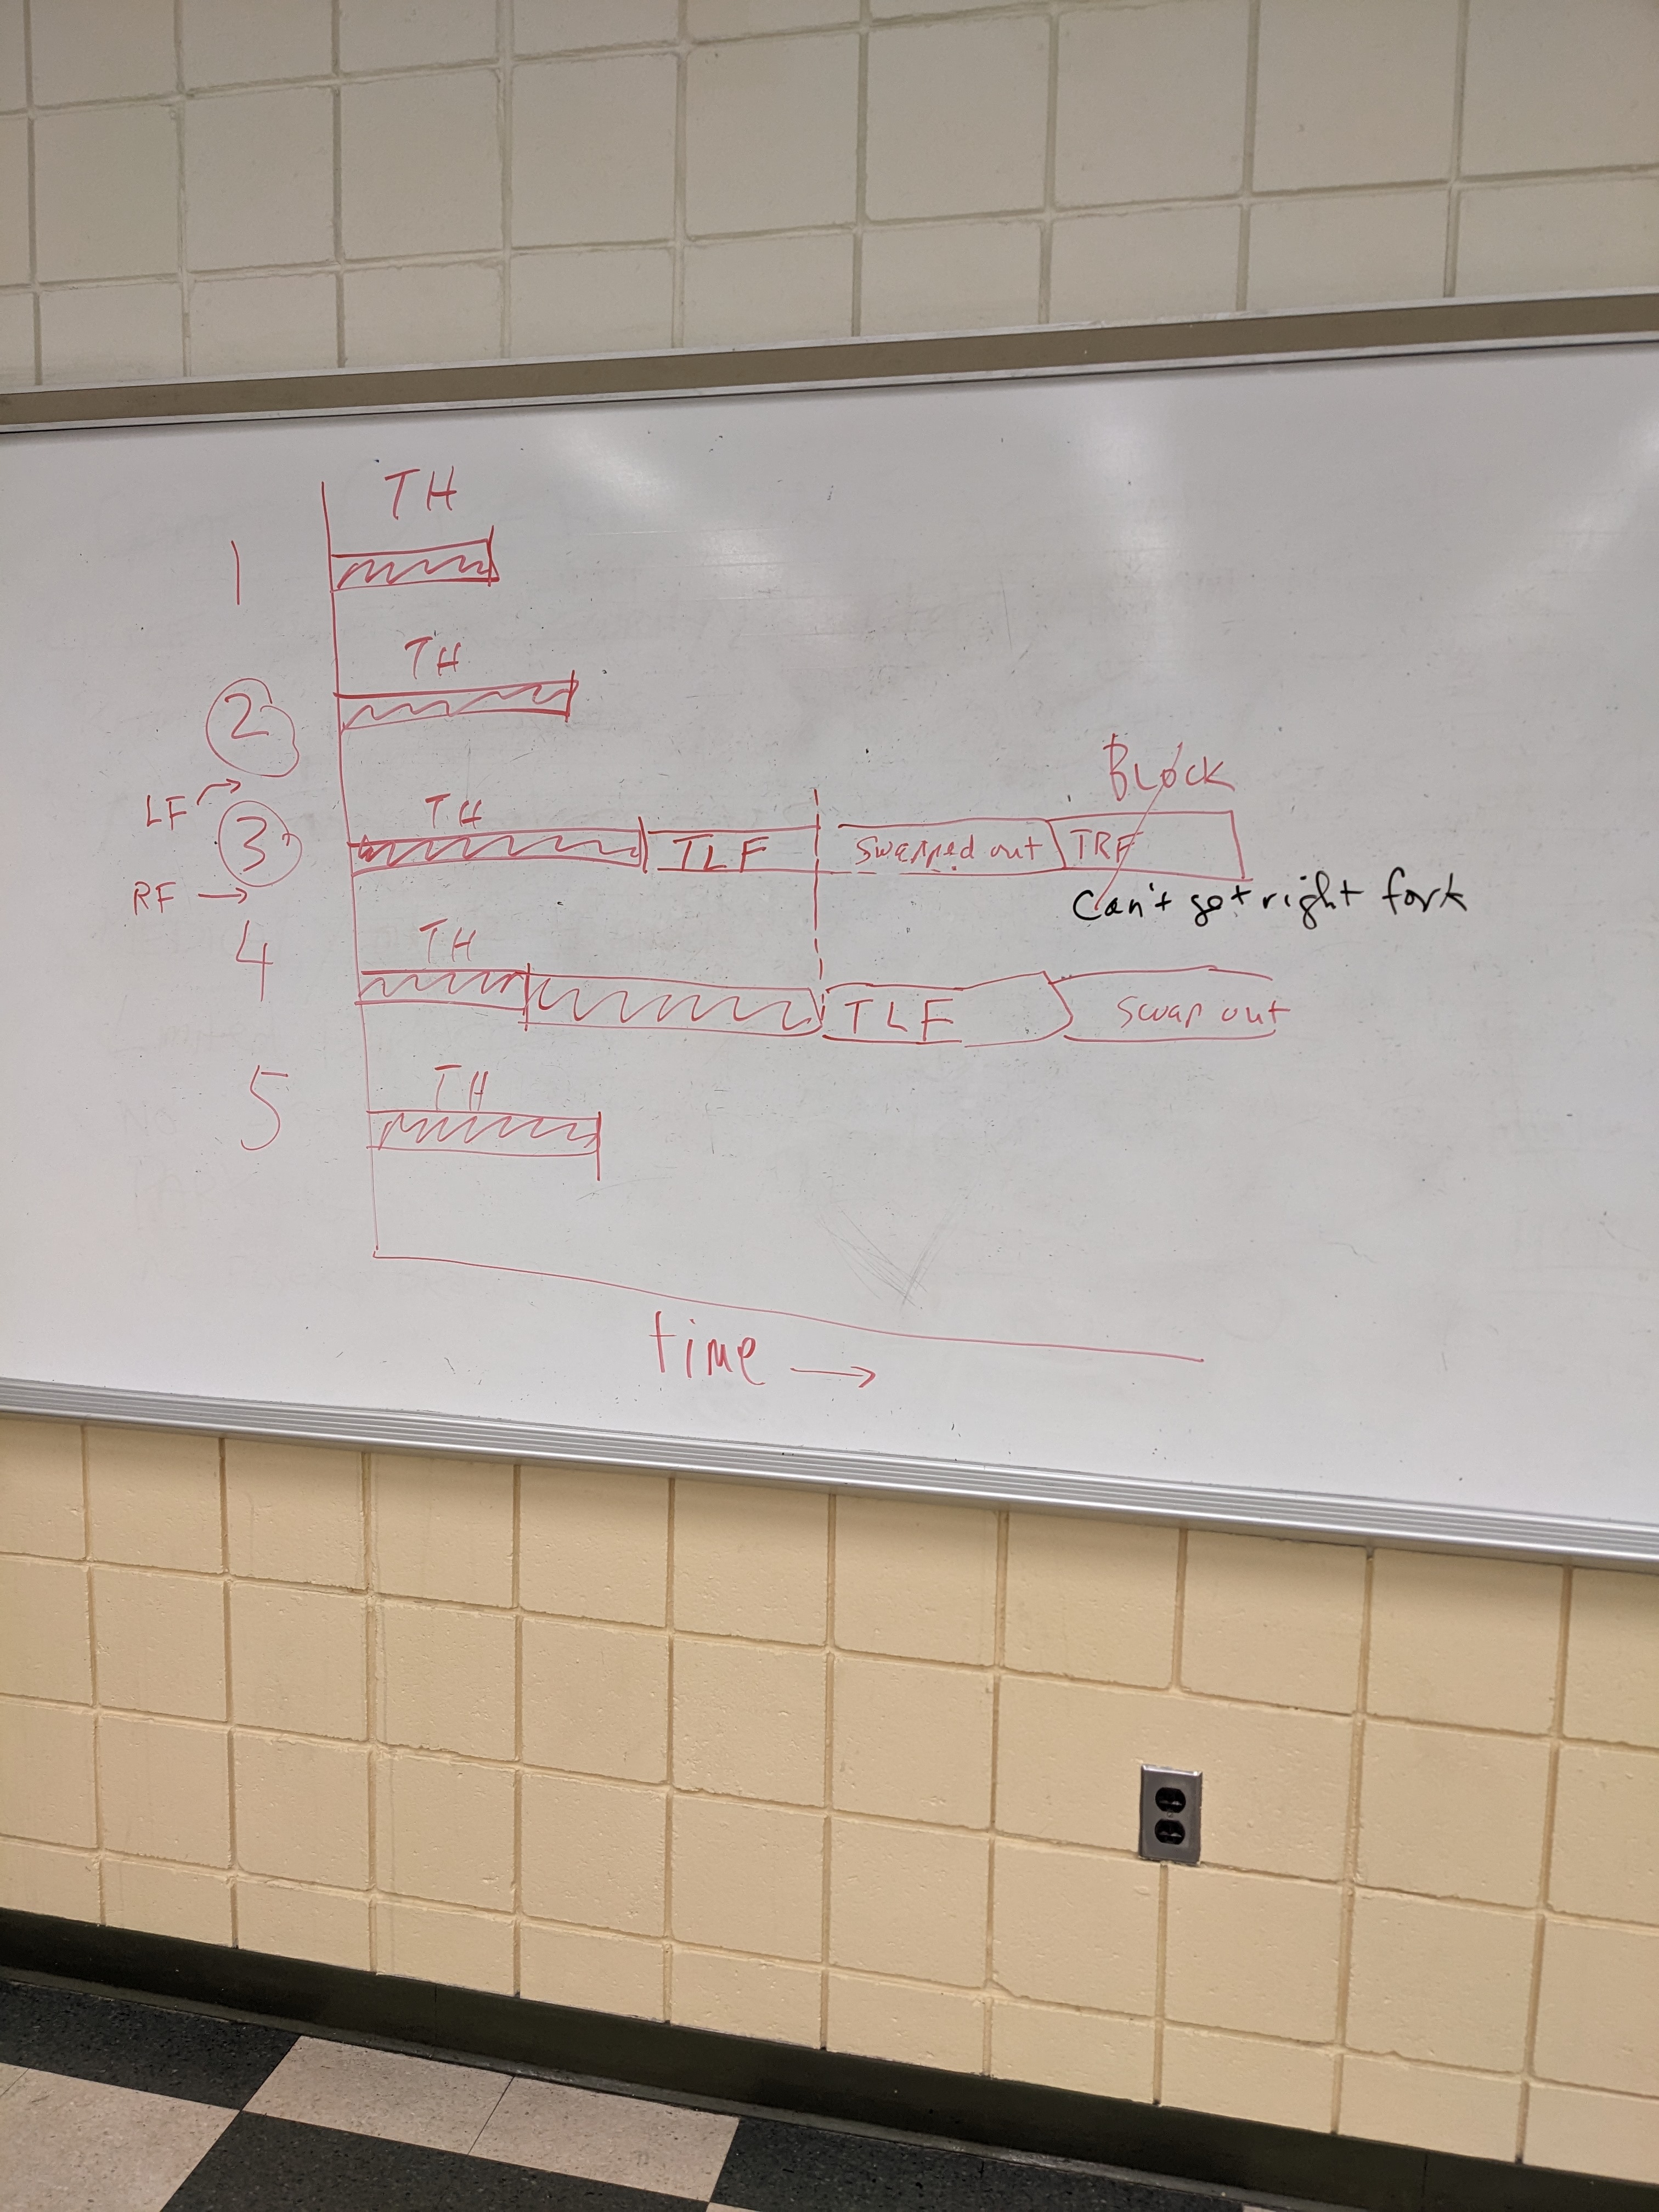 TH
1
TH
2
BLOCK
LF →
TH
3 TLF swapped out TRF
RF →
Can't get right fork
TH
4 TLF swap out
TH
5
time →